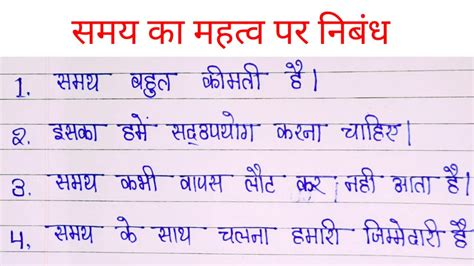 समय का महत्व पर निबंध
1. समय बहुत कीमती है।
2. इसका हमें सद्उपयोग करना चाहिए।
3. समय कभी वापस लौट कर नही आता है।
4. समय के साथ चलना हमारी जिम्मेदारी है